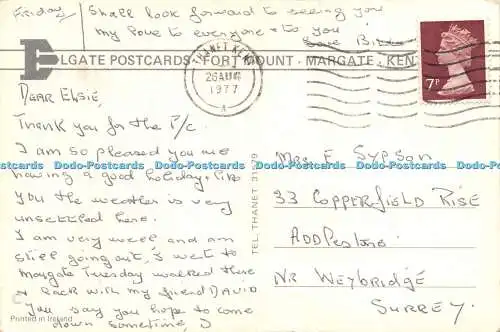 Friday
Shall look forward to seeing you
my love to everyone & to you
ELGATE POSTCARDS. FORT MOUNT. MARGATE, KENT
THANET KENT
26 AUG
1977
A
7P
DEAR ELSIE,
THANK YOU for the P/C
I am so pleased you are
having a good holiday, like
you the weather is very
unsettled here.
I am very well and am
still going out, I went to
Margate Tuesday walked there
& back with my friend DAVID
You say you hope to come
down sometime, I
Printed in Ireland
TEL. THANET
Mrs E SYPSON
33 COPPERFIELD RISE
ADDLESTONE
Nr WEYBRIDGE
SURREY.
Dodo-Postcards Dodo-Postcards Dodo-Postcards Dodo-Postcards Dodo-Postcards
Dodo-Postcards Dodo-Postcards Dodo-Postcards Dodo-Postcards Dodo-Postcards